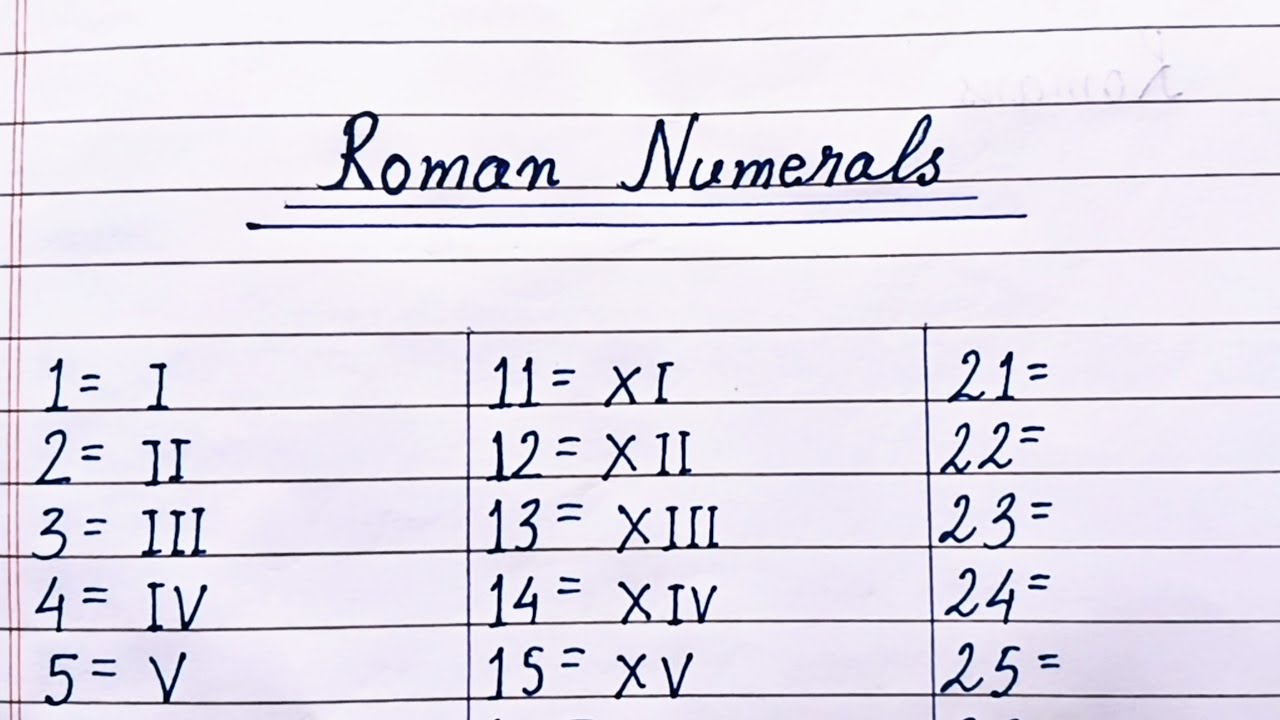 Roman Numerals
1 = I
2 = II
3 = III
4 = IV
5 = V
11 = XI
12 = XII
13 = XIII
14 = XIV
15 = XV
21 =
22 =
23 =
24 =
25 =